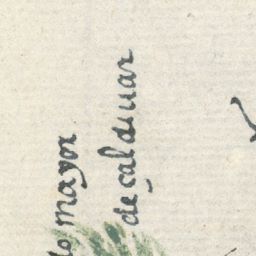 lo mayor
de çaldiuar